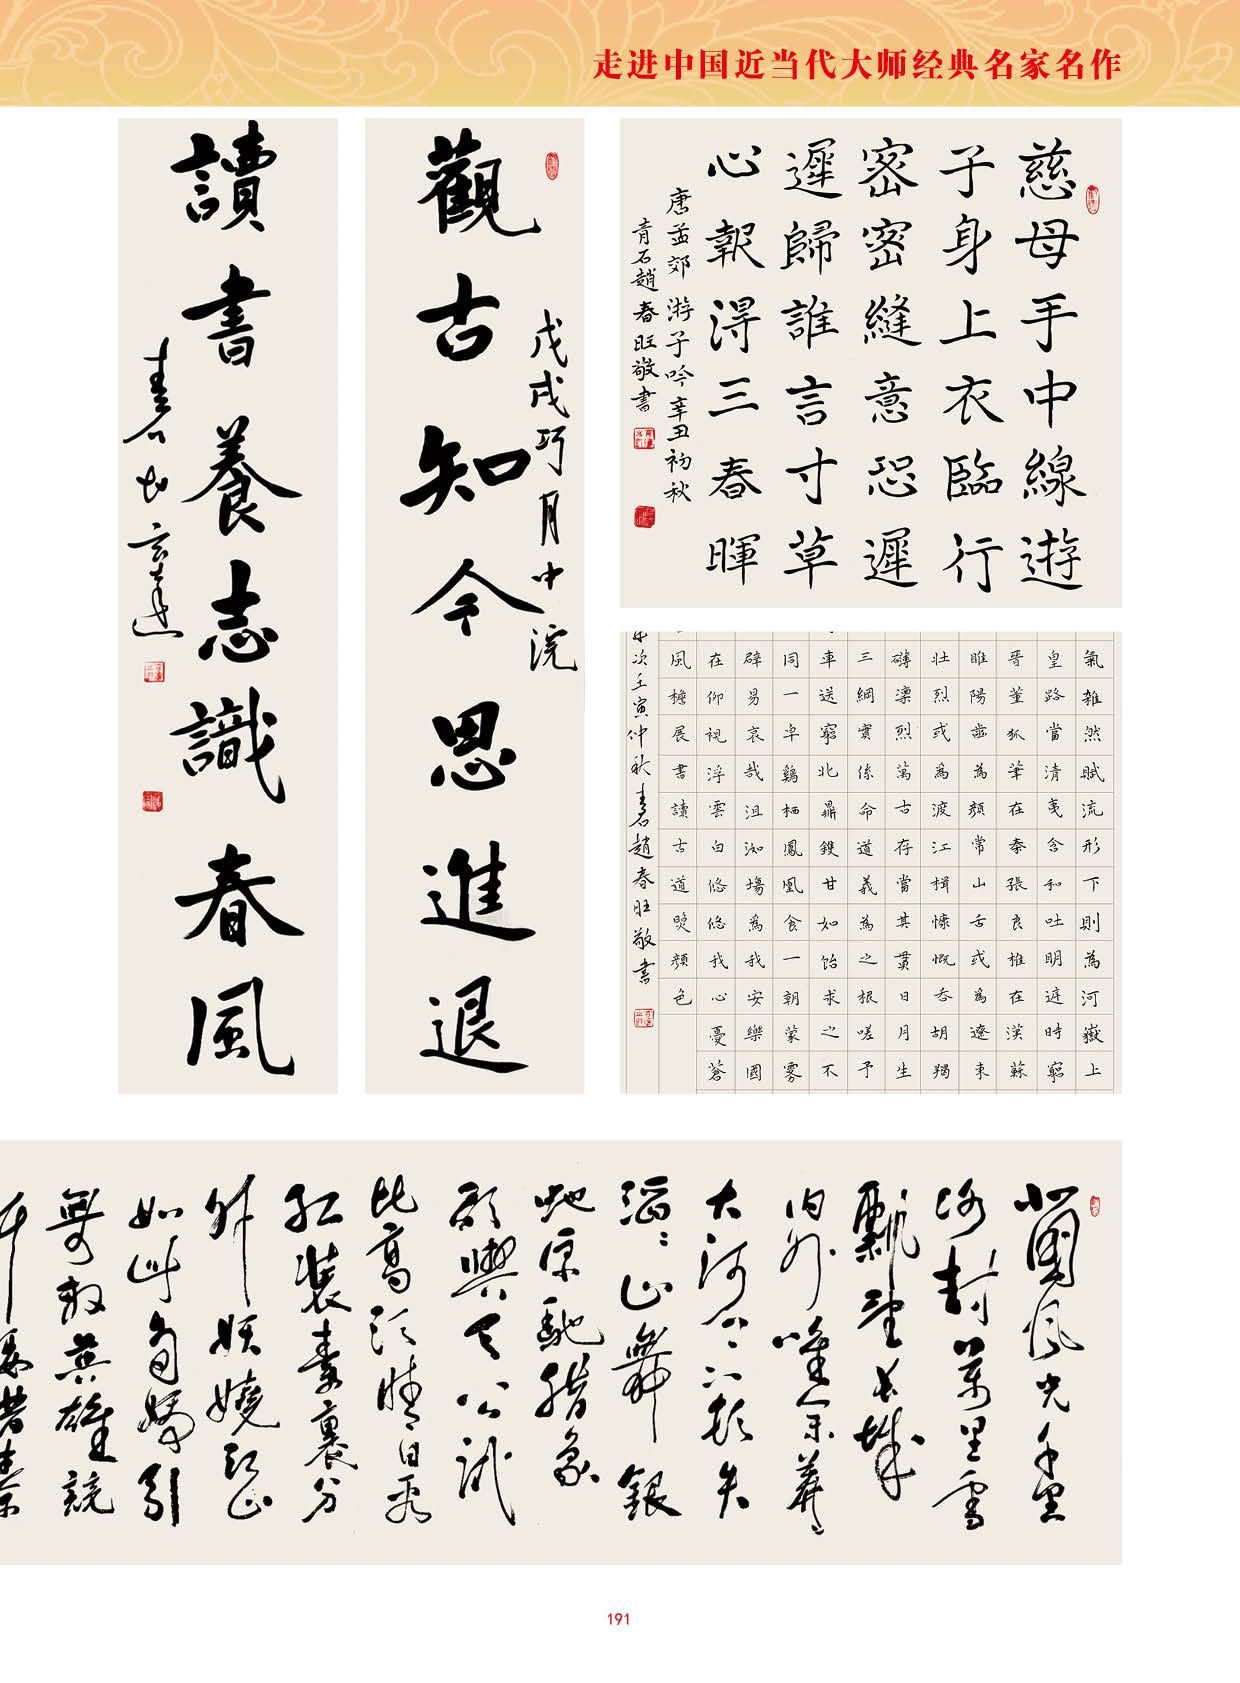 走进中国近当代大师经典名家名作
慈母手中線遊
子身上衣臨行
密密縫意恐遲
遲歸誰言寸草
心報得三春暉
唐孟郊游子吟辛丑初秋
青石趙春旺敬書
戊戌巧月中浣
觀古知今思進退
讀書養志識春風
氣雜然賦流形下則為河嶽上
皇路當清夷含和吐明庭時窮
晉董狐筆在秦張良椎在漢蘇
睢陽齒為顏常山舌或為遼東
壯烈或為渡江楫慷慨吞胡羯
磚凛烈萬古存當其貫日月生
三綱實係命道義為之根嗟予
車送窮北鼎鑊甘如飴求之不
同一皁鷄栖鳳凰食一朝蒙霧
辟易哀哉沮洳場為我安樂國
在仰視浮雲白悠悠我心憂蒼
風檐展書讀古道照顏色
次壬寅仲秋青石趙春旺敬書
北國風光千里
冰封萬里雪
飄望長城
内外唯余莽〻
大河上下頓失
滔〻山舞銀
蛇原馳蜡象
欲與天公試
比高須晴日看
紅裝素裹分
外妖嬈江山
如此多嬌引
無數英雄競
191